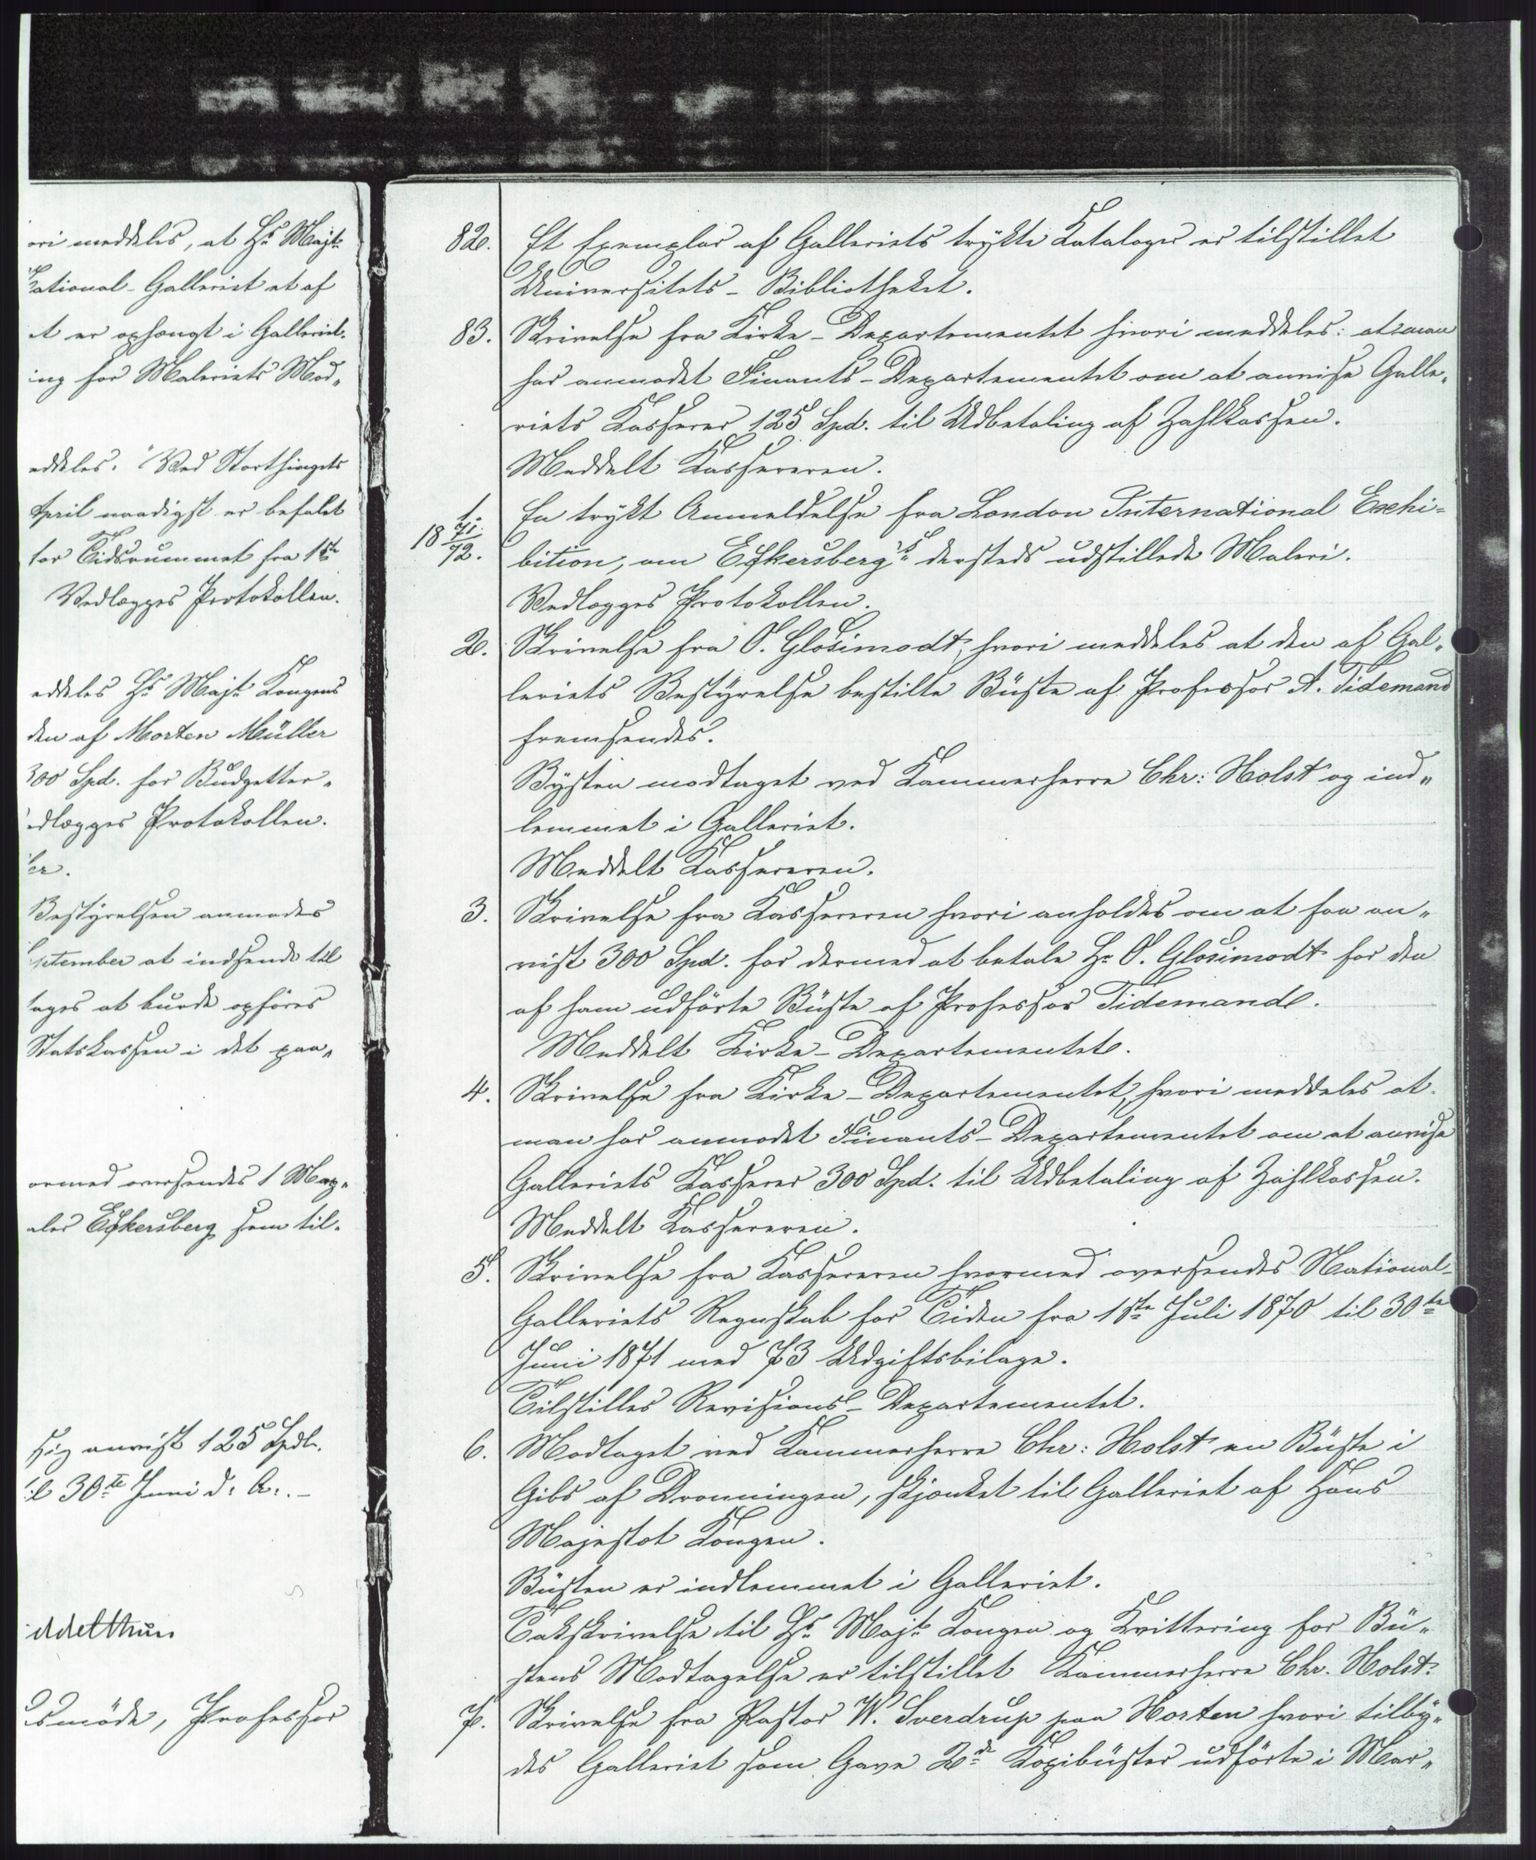 ori meddeles, at Hs Majt.
National-Galleriet et af
et er ophængt i Galleriet.
ing for Maleriets Mod„
eddeles. "Ved Storthingets
April naadigst er befalet
for Tidsrummet fra 1ste
Vedlægges Protokollen.
eddeles Hs Majt Kongens
den af Morten Müller
300 Spd. for Budgetter„
edlægges Protokollen.
ler.
Bestyrelsen anmodes
September at indsende til
tages at burde opföres
Statskassen i det paa„
ormed oversendes 1 Map„
aler Eckersberg som til„
sig anvist 125 Spdlr.
til 30te Juni d. A. –
iddelthun
usmöde, Professor
82. Et Exemplar af Galleriets trykte Kataloger er tilstillet
Universitets-Bibliotheket.
83. Skrivelse fra Kirke-Departementet hvori meddeles: at man
har anmodet Finants-Departementet om at anvise Galle„
riets Kasserer 125 Spd. til Udbetaling af Zahlkassen.
Meddelt Kassereren.
18 71/72. 1. En trykt Anmeldelse fra London International Exhi-
bition, om Eckersberg's dersteds udstillede Maleri.
Vedlægges Protokollen.
2. Skrivelse fra O. Glosimodt, hvori meddeles at den af Gal„
leriets Bestyrelse bestilte Büste af Professor A. Tidemand
fremsendes.
Bysten modtaget ved Kammerherre Chr: Holst og ind„
lemmet i Galleriet.
Meddelt Kassereren.
3. Skrivelse fra Kassereren hvori anholdes om at faa an„
vist 300 Spd. for dermed at betale Hr O. Glosimodt for den
af ham udförte Büste af Professor Tidemand.
Meddelt Kirke-Departementet.
4. Skrivelse fra Kirke-Departementet, hvori meddeles at
man har anmodet Finants-Departementet om at anvise
Galleriets Kasserer 300 Spd. til Udbetaling af Zahlkassen.
Meddelt Kassereren.
5. Skrivelse fra Kassereren hvormed oversendes National-
Galleriets Regnskab for Tiden fra 1ste Juli 1870 til 30te
Juni 1871 med 73 Udgiftsbilage.
Tilstilles Revisions-Departementet.
6. Modtaget ved Kammerherre Chr: Holst en Büste i
Gibs af Dronningen, skjænket til Galleriet af Hans
Majestæt Kongen.
Büsten er indlemmet i Galleriet.
Takskrivelse til Hs Majt Kongen og Kvittering for Bü„
stens Modtagelse er tilstillet Kammerherre Chr. Holst.
7. Skrivelse fra Pastor W. Sverdrup paa Horten hvori tilby„
des Galleriet som Gave 2de Kopibüster udförte i Mar„